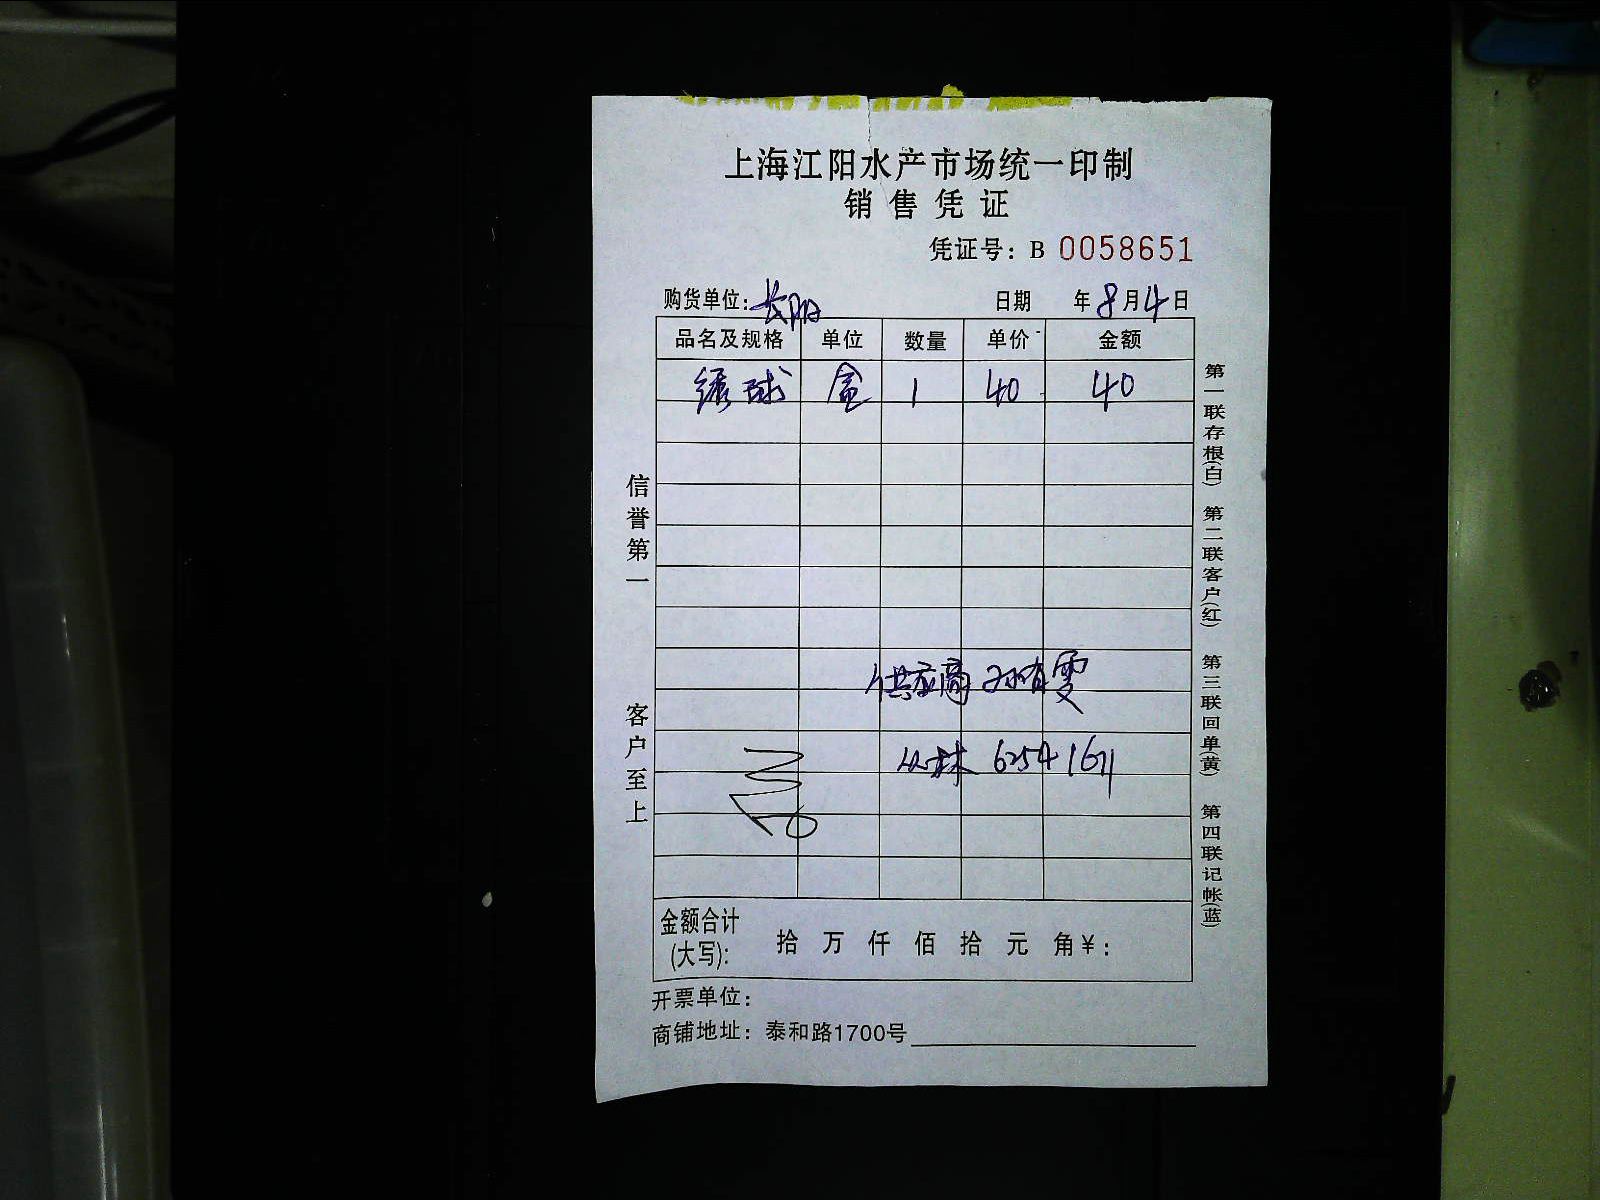 上海江阳水产市场统一印制
销售凭证
凭证号: B 0058651
购货单位: 长阳 日期 年8月4日
品名及规格 单位 数量 单价 金额
绣球 盒 1 40 40
供应商 孙有雯
丛林 62541671
金额合计
(大写): 拾 万 仟 佰 拾 元 角 ¥:
开票单位:
商铺地址: 泰和路1700号
信誉第一 客户至上
第一联存根(白) 第二联客户(红) 第三联回单(黄) 第四联记帐(蓝)